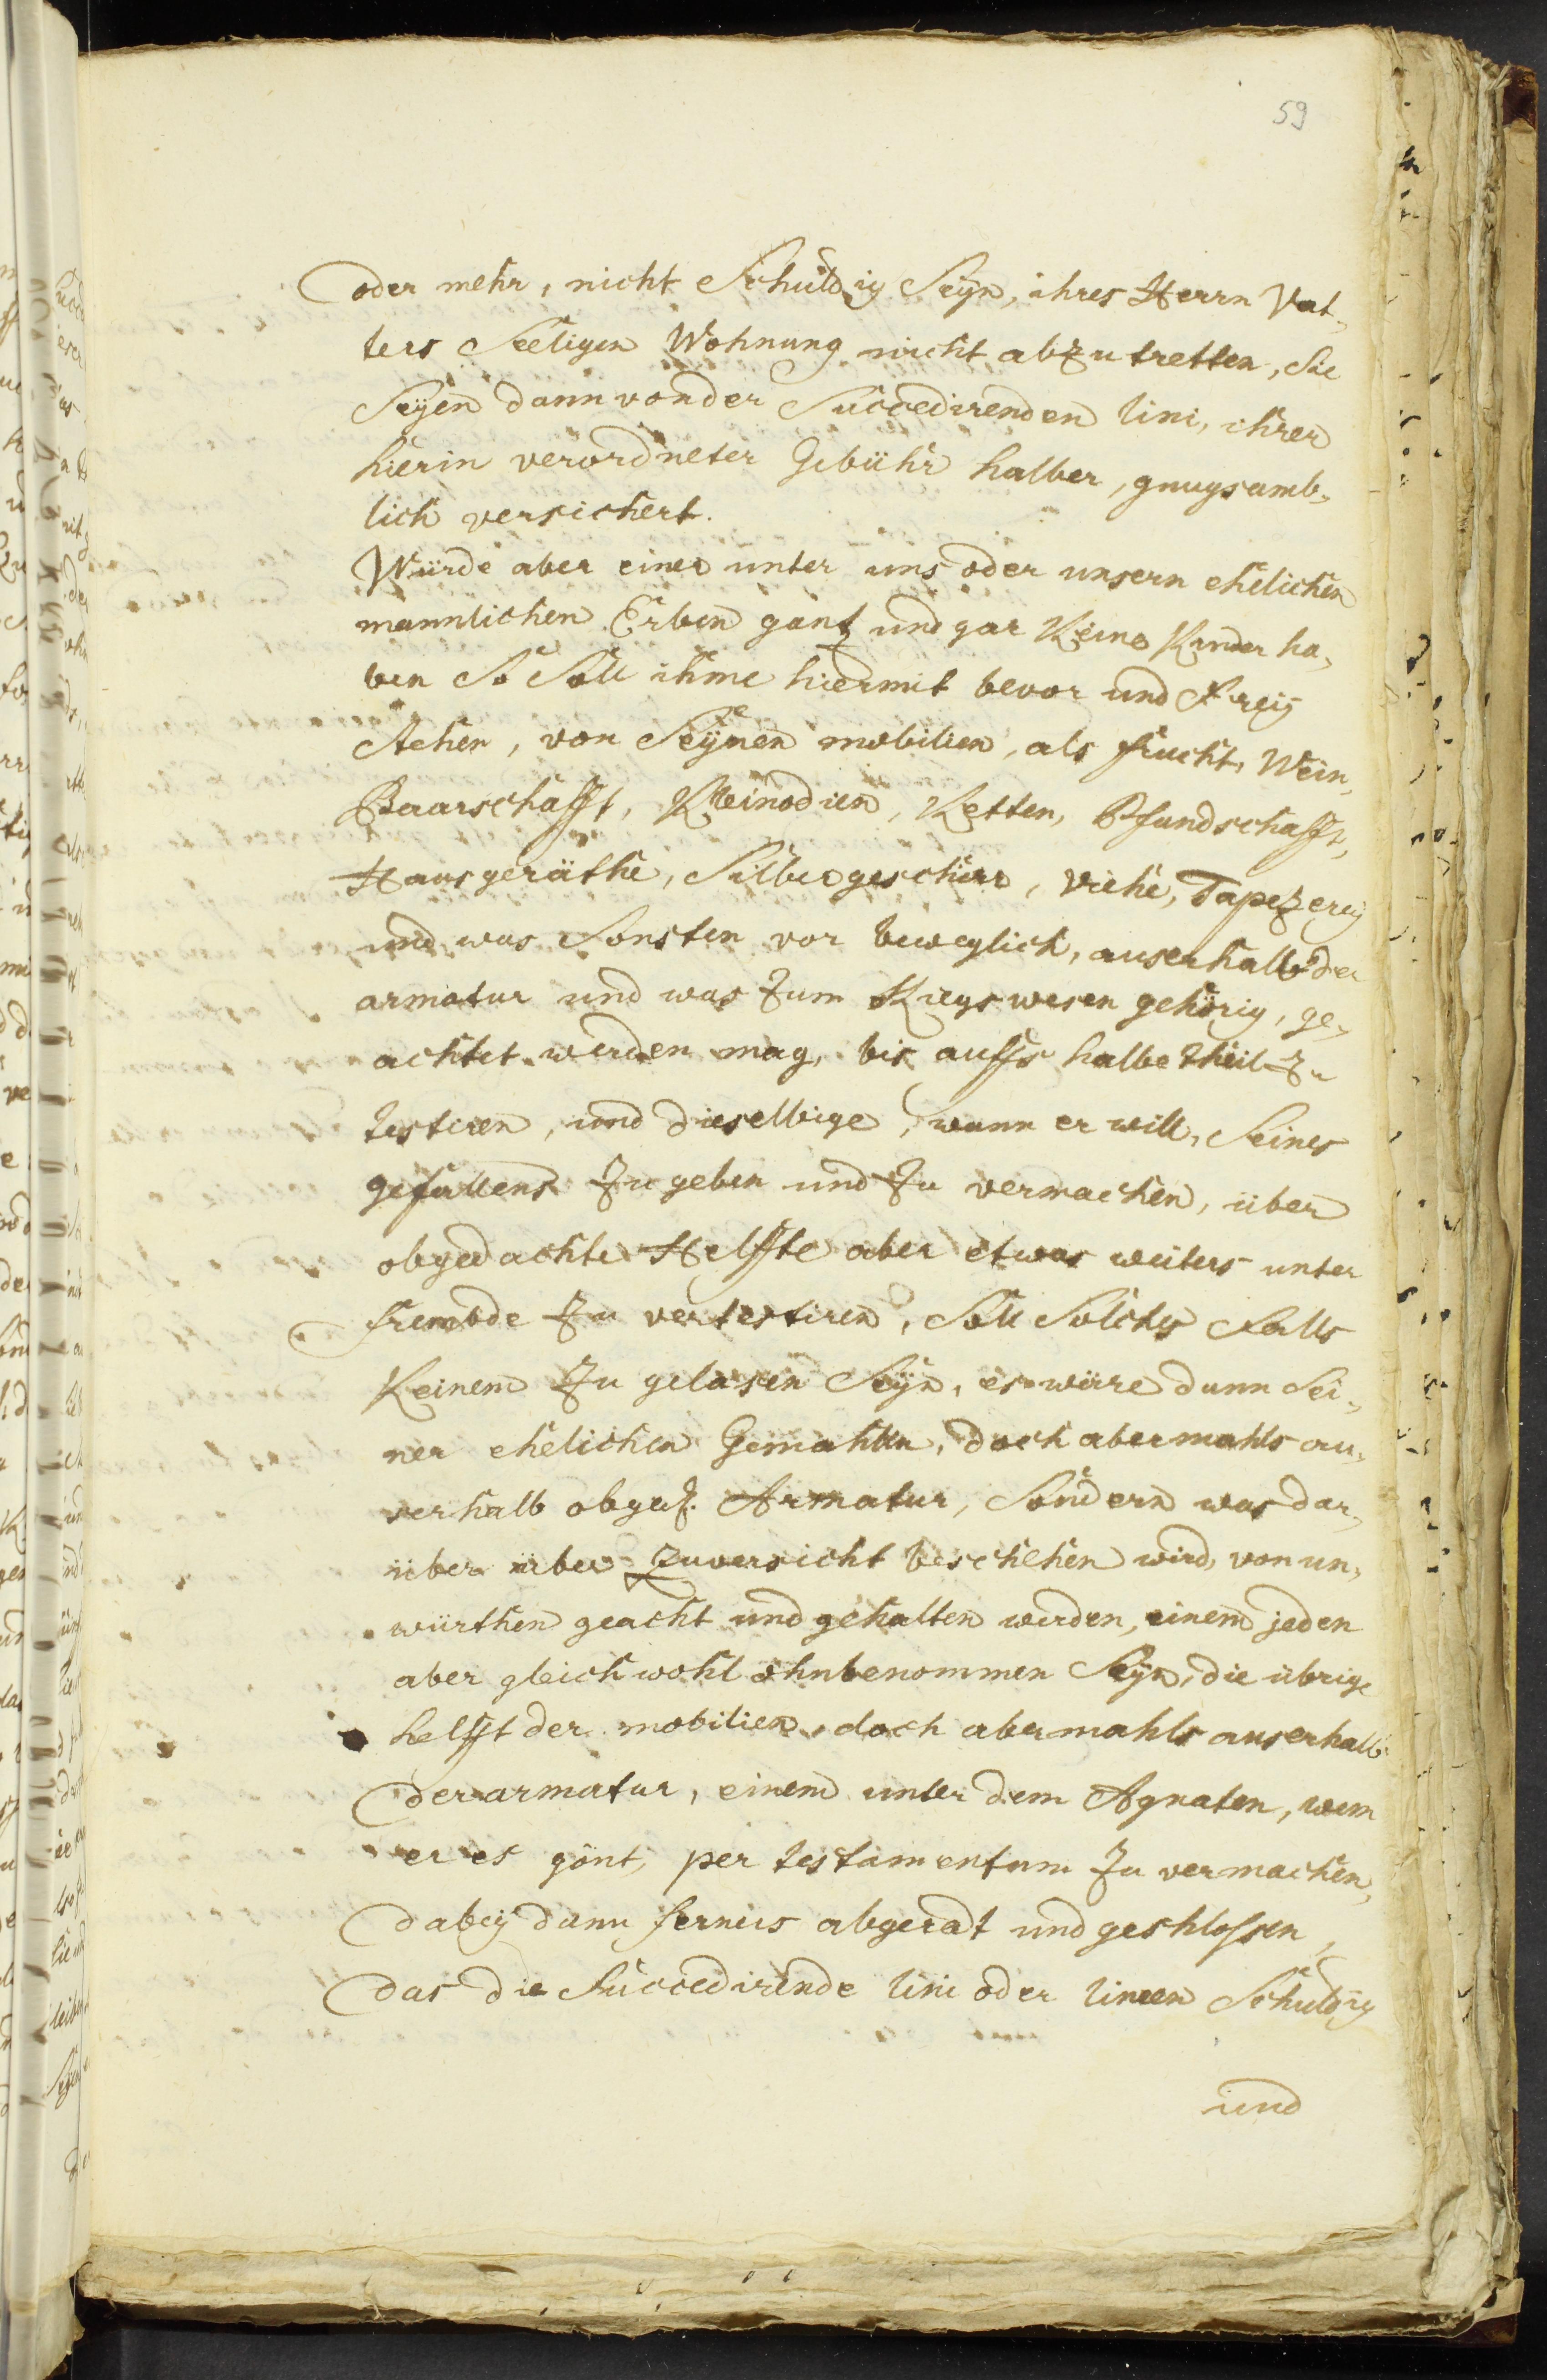 59
oder mehr, nicht Schuldig Seyn, ihres Herrn Vat,
ters Seeligen Wohnung nicht abzutretten, Sie
Seyen dann von der Succedirenden lini, ihrer
hierin verordneter Gebühr halber, gnugsamb,
lich versichert.
Würde aber einer unter uns oder unsern ehelichen
mannlichen Erben gantz und gar Keine Kinder ha,
ben So Soll ihme hiermit bevor und Freij
stehen, von Seynen mobilien, als frucht, Wein,
Baarschafft, Kleinodien, Ketten, Pfandschafft,
Hausgeräthe, Silbergeschirr, viehe, Tapezerey
und was Sonsten vor beweglich, auserhalb der
armatur und was zum Kriegswesen gehörig, ge,
achtet werden mag, bis auffs halbe theil zu
testiren, und dieselbige, wann er will, Seines
gefallens zu geben und zu vermachen, über
obgedachte Helffte aber etwas weiters unter
frembde zu vertestiren, Soll Solches Falls
Keinem zu gelasen Seyn, es wäre dann Sei,
ner ehelichen Gemahlin, doch abermahls au,
serhalb obges. Armatur, Sondern was dar,
über über Zuversicht beschehen wird, von un,
würthen geacht und gehalten werden, einem jeden
aber gleichwohl ohnbenommen Seyn, die übrige
helfft der mobilien, doch abermahls auserhalb
der armatur, einem unter dem Agnaten, wem
er es gönt, per testamentum zu vermachen,
dabey dann ferners abgeradt und geschlossen,
das die Succedirende lini oder linien Schuldig
und